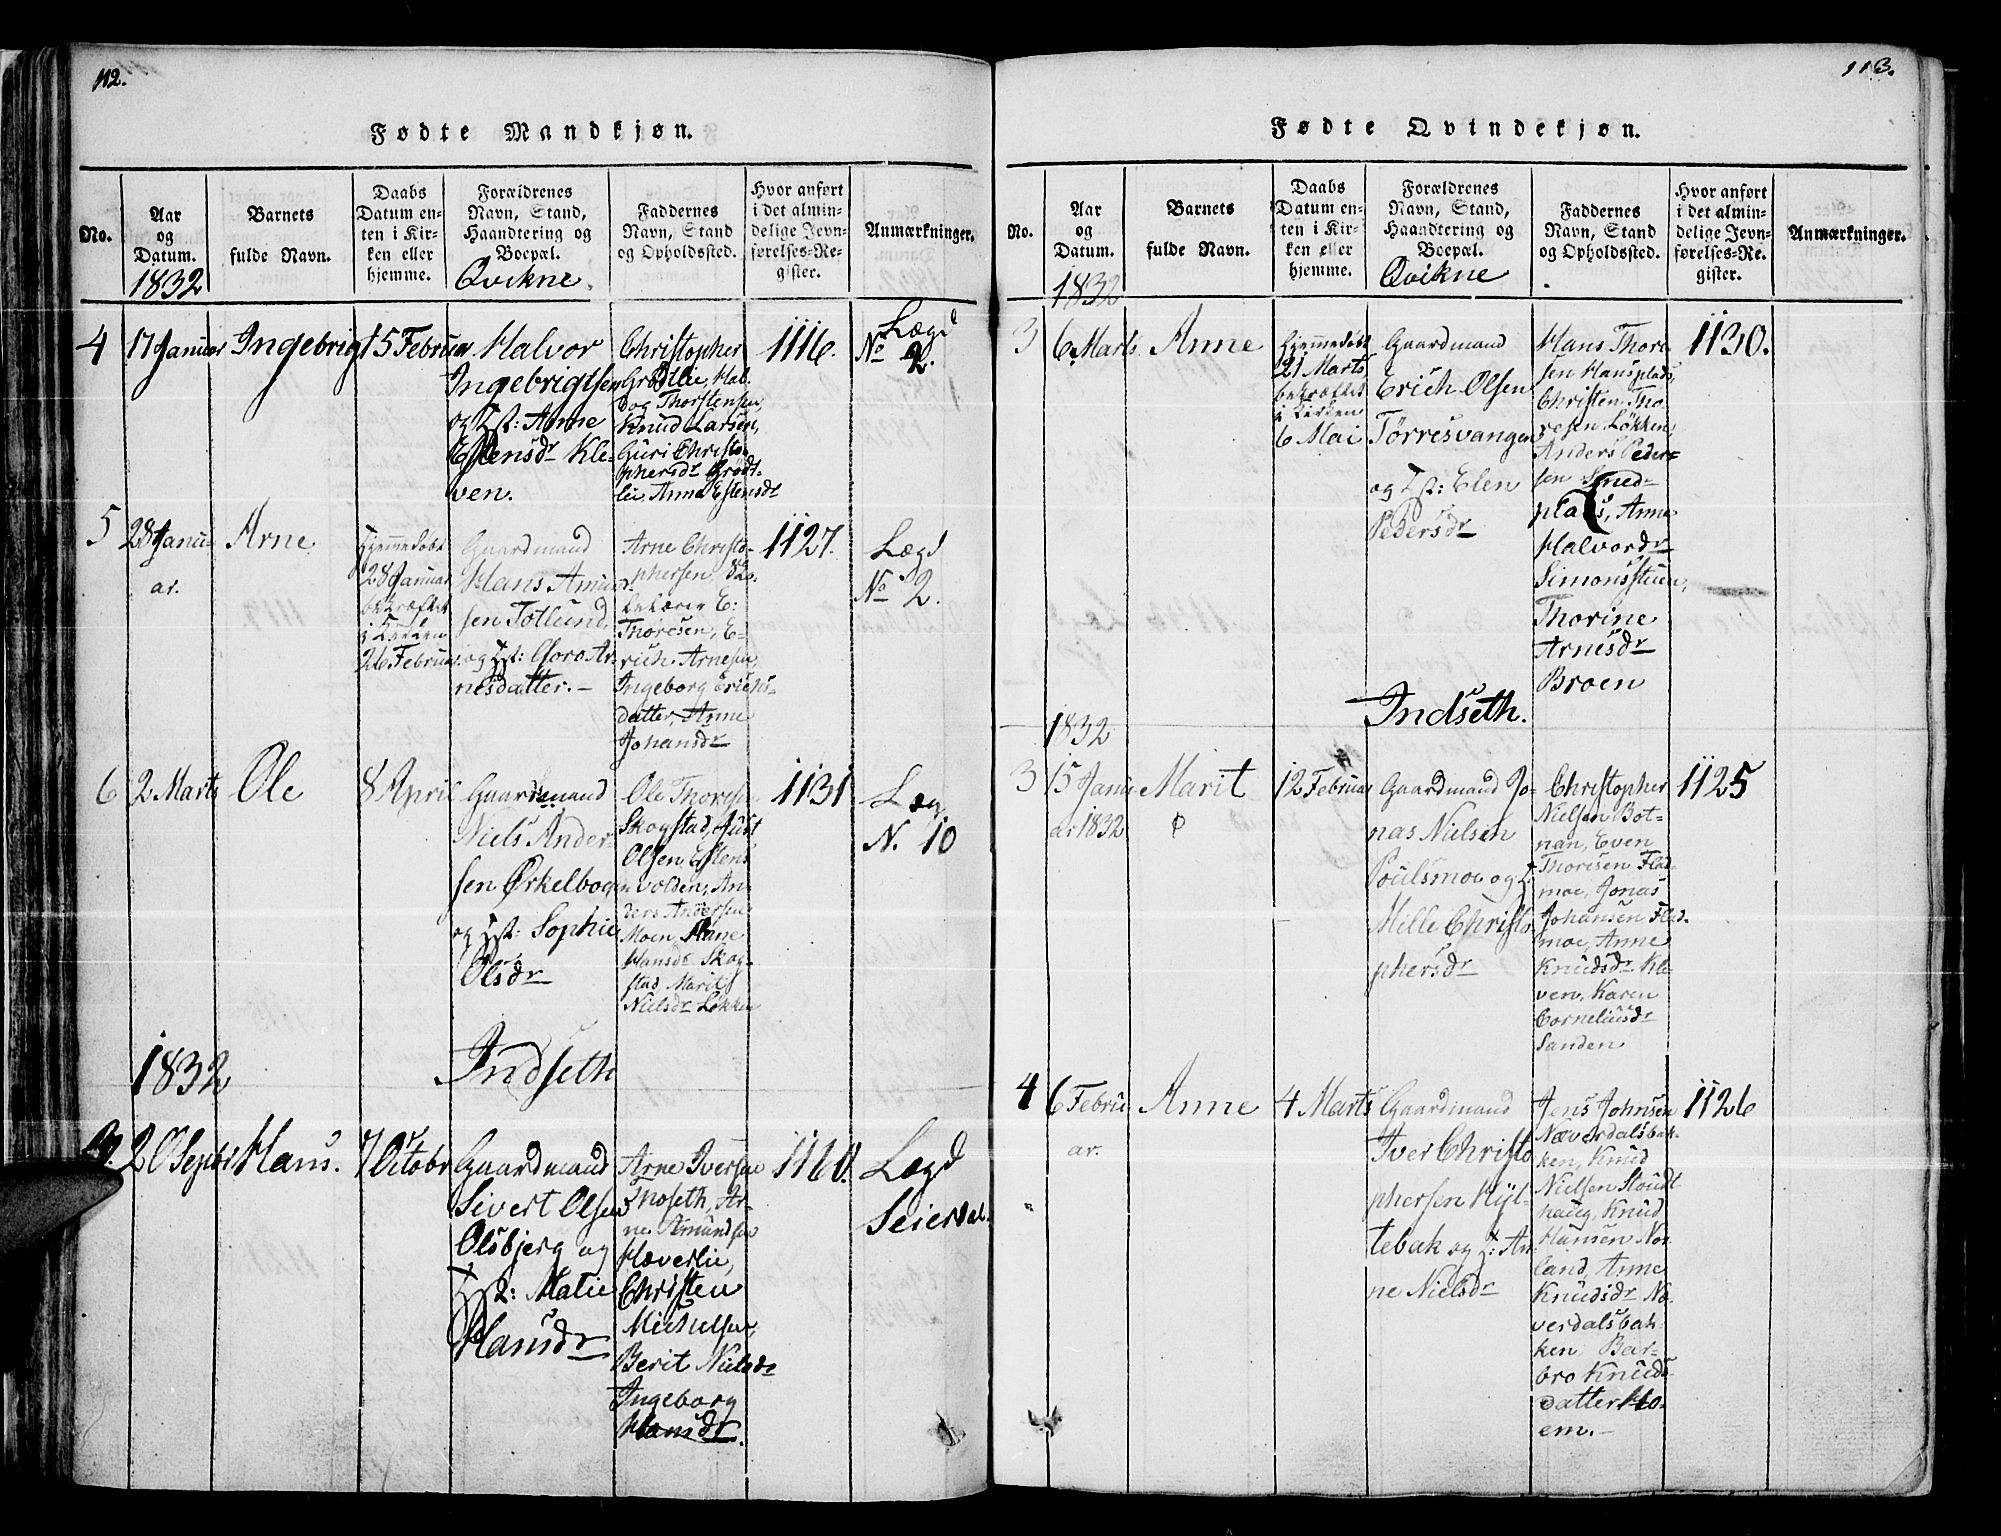 112.
Fødte Mandkjøn.
No.
Aar
og
Datum.
1832
Barnets
fulde Navn.
Daabs
Datum en-
ten i Kir-
ken eller
hjemme.
Forældrenes
Navn, Stand,
Haandtering og
Boepæl.
Qvikne
Faddernes
Navn, Stand
og Opholdssted.
Hvor anført
i det almin-
delige Jevn-
førelses-Re-
gister.
Anmærkninger.
4
17 Januar
Ingebrigt
5 Februar
Halvor
Ingebrigtsen
og Hst: Anne
Estensdr Kle-
ven.
Christopher
Grøtlie, Hal-
dog Thorstensen,
Knud Larsen,
Guri Christo-
phersdr Grødt-
lie, Anne Estensdr
1116.
Lægd
No 2.
5
28 Janu-
ar.
Arne
Hjemmedøbt
28 Januar
bekræftet
i Kirken
26 Februar
Gaardmand
Hans Amund-
sen Totlund
og Hst: Goro Ar-
nesdatter.-
Arne Christo-
phersen,
E:
Thoresen, E-
rich Arnesen,
Ingeborg Erichs-
datter, Anne
Johansdr
1127.
Lægd
No 2.
6
2 Marts
Ole
8 April
Gaardmand
Niels Ander-
sen Ørkelbogen
og Hst: Sophie
Olsdr
Ole Thoresen
Skogstad, Just
Olsen Estens-
volden, An-
ders Andersen
Moen, Mane
Hansdr Skog-
stad Marit
Nielsdr Løkken
1131
Læg
N. 10
1832
Indseth
9.
20 Septbr
Hans.
7 Octobr
Gaardmand
Sivert Olsen
Olsbjerg og
Hst: Matie
Hansdr
Arne Iversen
Moseth, Ar-
ne Amundsen
Haverlie,
Christen
Michelsen,
Berit Nielsdr
Ingeborg
Hansdr.
1160.
Lægd
Seierdal.
113.
Fødte Qvindekjøn.
No.
Aar
og
Datum.
1832
Barnets
fulde Navn.
Daabs
Datum en-
ten i Kir-
ken eller
hjemme.
Forældrenes
Navn, Stand,
Haandtering og
Boepæl.
Qvikne
Faddernes
Navn, Stand
og Opholdssted.
Hvor anført
i det almin-
delige Jevn-
førelses-Re-
gister.
Anmærkninger.
3
6 Marts
Anne
Hjemmedøbt
21 Marts
bekræftet
i Kirken
6 Mai
Gaardmand
Erich Olsen
Tørresvangen
og Hst: Elen
Pedersdr
Hans Thore-
sen Hansplads,
Christen Tho-
resen Løkken,
Anders Peder-
sen Smed-
plads, Anne
Halvordr
Simonsstuen,
Thorine
Arnesdr
Broen
1130.
1832
Indseth.
3
15 Janu-
ar 1832
Marit
12 Februar
Gaardmand Jo-
nas Nielsen
Poulsmoe og H:
Mille Christo
phersdr
Christopher
Nielsen Bot-
nan, Even
Thoresen Flad-
moe, Jonas
Johansen Flad-
moe, Anne
Knudsdr Kle-
ven, Karen
Corneliusdr
Sanden
1125
4
6 Febru-
ar.
Anne
4 Marts
Gaardmand
Iver Christo
phersen Hyt-
tebak og H: An-
ne Nielsdr
Jens Johnsen
Næverdalsbak-
ken, Knud
Nielsen Stoudt-
haug, Knud
Hansen Nor-
land, Anne
Knudsdr Næ-
verdalsbak-
ken, Bar-
bro Knuds-
datter Mo-
em.-
1126